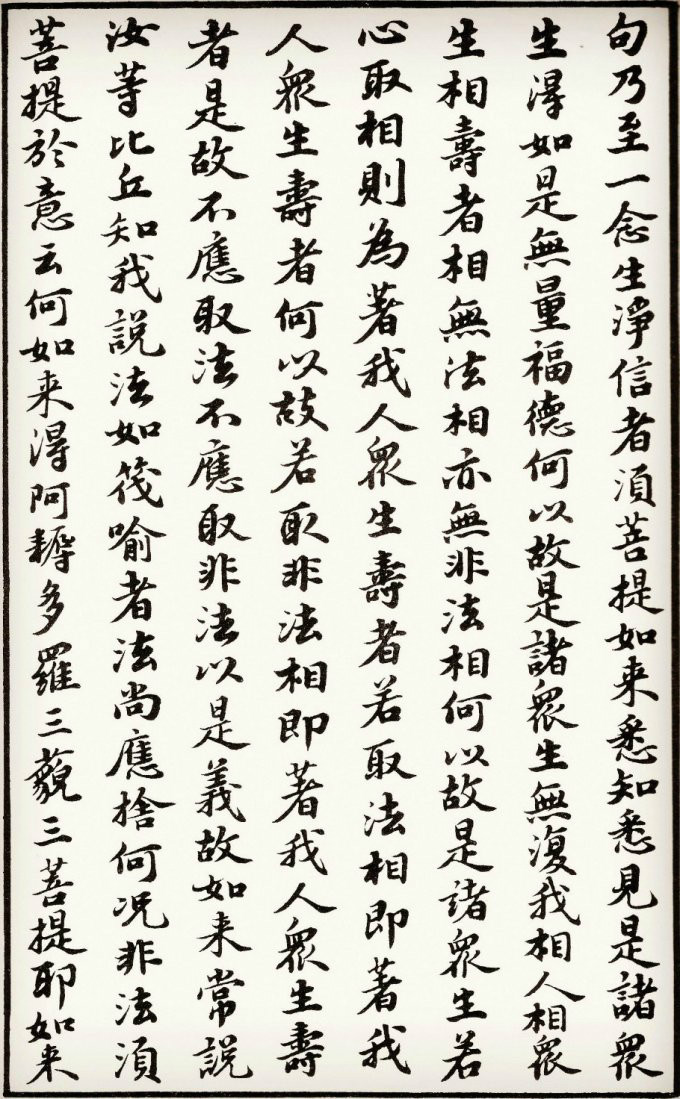 句乃至一念生淨信者須菩提如来悉知悉見是諸眾
生得如是無量福德何以故是諸眾生無復我相人相眾
生相壽者相無法相亦無非法相何以故是諸眾生若
心取相則為著我人眾生壽者若取法相即著我
人眾生壽者何以故若取非法相即著我人眾生壽
者是故不應取法不應取非法以是義故如来常說
汝等比丘知我說法如筏喻者法尚應捨何况非法須
菩提於意云何如来得阿耨多羅三藐三菩提耶如来